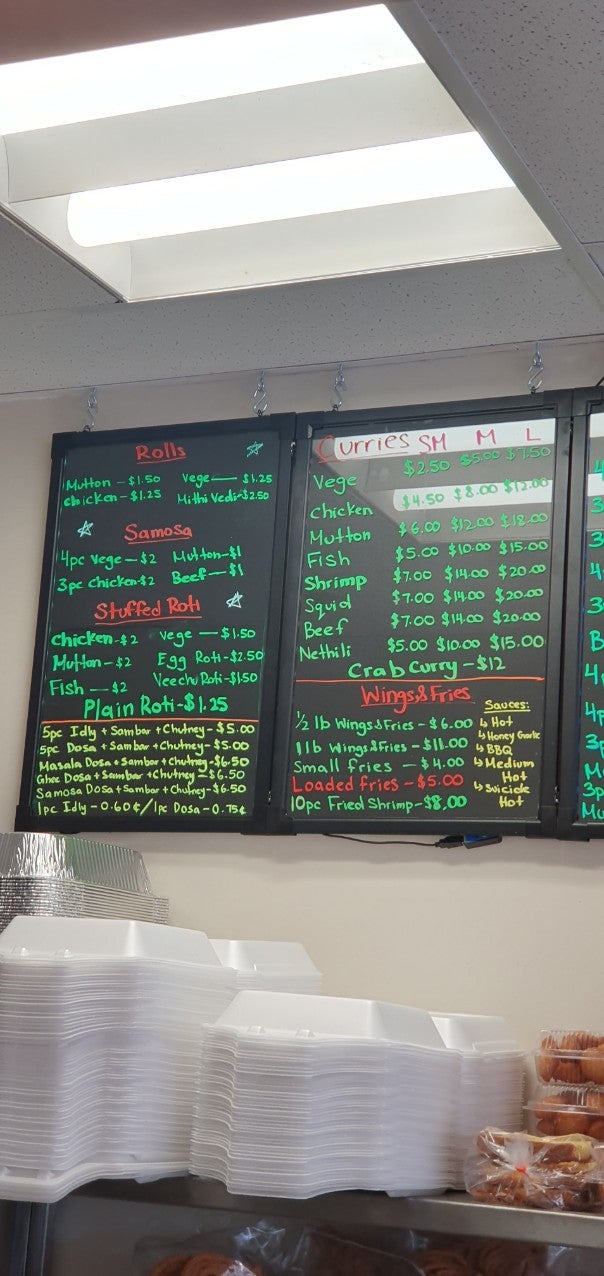 Rolls
Mutton - $1.50 Vege — $1.25
Chicken - $1.25 Mithi Vedi - $2.50
Samosa
4pc Vege - $2 Mutton - $1
3pc Chicken - $2 Beef — $1
Stuffed Roti
Chicken - $2 Vege — $1.50
Mutton - $2 Egg Roti - $2.50
Fish — $2 Veechu Roti - $1.50
Plain Roti - $1.25
5pc Idly + Sambar + Chutney - $5.00
5pc Dosa + Sambar + Chutney - $5.00
Masala Dosa + Sambar + Chutney - $6.50
Ghee Dosa + Sambar + Chutney - $6.50
Samosa Dosa + Sambar + Chutney - $6.50
1pc Idly - 0.60¢ / 1pc Dosa - 0.75¢
Curries SM M L
Vege $2.50 $5.00 $7.50
Chicken $4.50 $8.00 $12.00
Mutton $6.00 $12.00 $18.00
Fish $5.00 $10.00 $15.00
Shrimp $7.00 $14.00 $20.00
Squid $7.00 $14.00 $20.00
Beef $7.00 $14.00 $20.00
Nethili $5.00 $10.00 $15.00
Crab Curry - $12
Wings & Fries
1/2 lb Wings & Fries - $6.00
1 lb Wings & Fries - $11.00
Small fries - $4.00
Loaded fries - $5.00
10pc Fried Shrimp - $8.00
Sauces:
↳ Hot
↳ Honey Garlic
↳ BBQ
↳ Medium
Hot
↳ Suicide
Hot
4
3
4
3
B
4p
4p
3p
M
3p
Mu